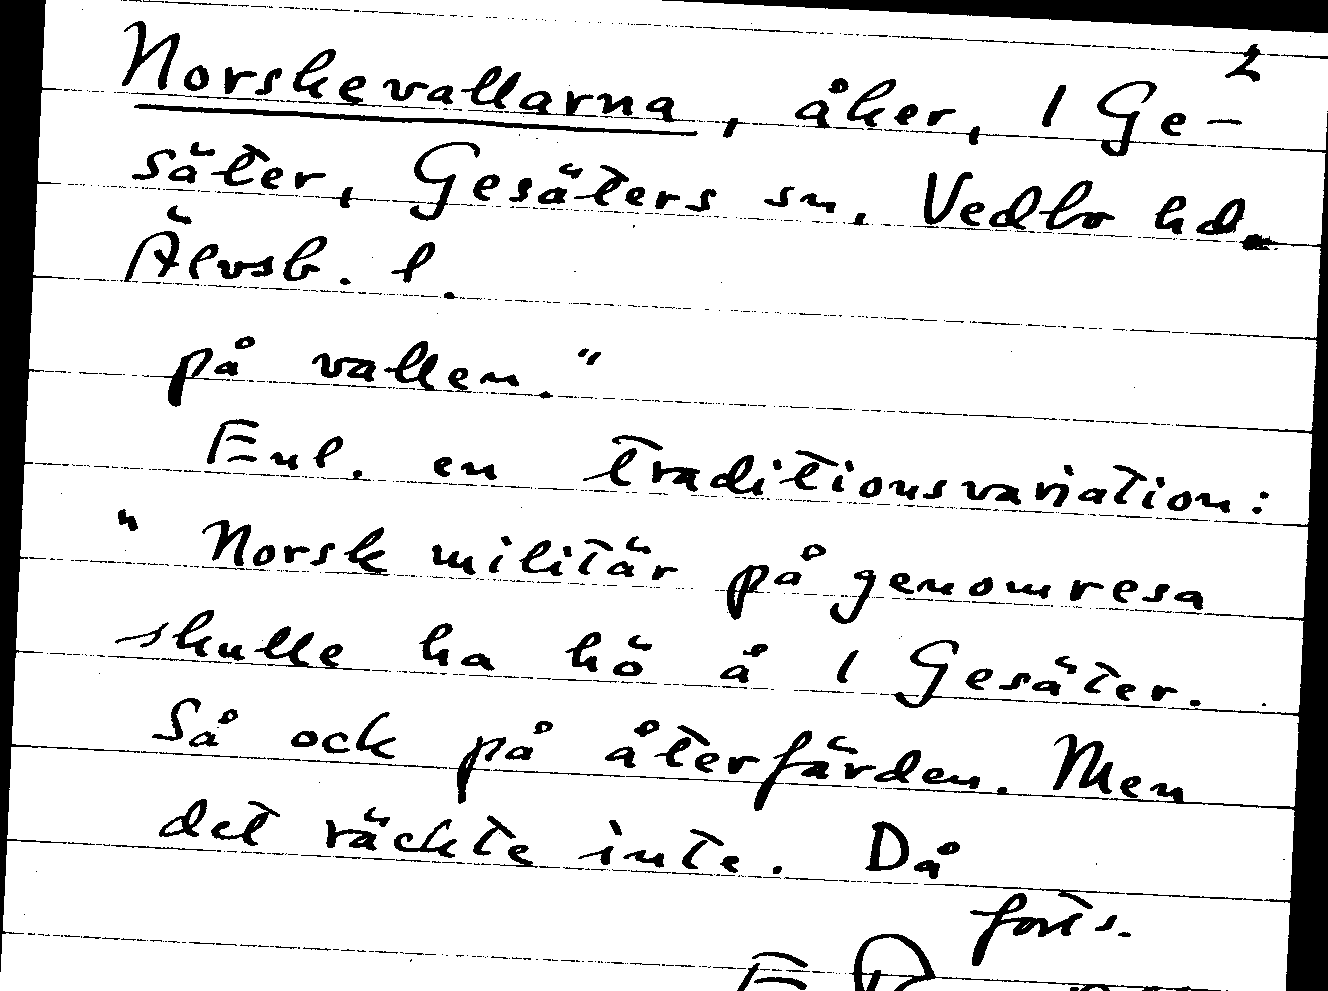 2
Norskevallarna, åker, 1 Ge-
säter, Gesäters sn, Vedbo hd.
Älvsb. l.
på vallen."
Enl. en traditionsvariation:
"Norsk militär på genomresa
skulle ha hö å 1 Gesäter.
Så ock på återfärden. Men
det räckte inte. Då
forts.